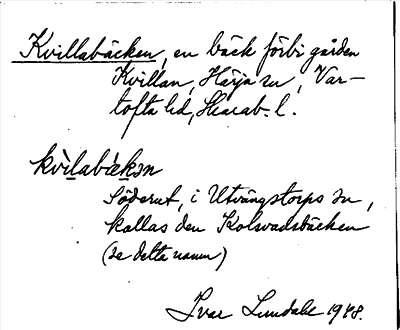 Kvillabäcken, en bäck förbi gården
Kvillan, Härja sn, Var-
tofta hd, Skarab. l.
kvìlabäkən
Söderut, i Utvängstorps sn,
kallas den Kolsvadsbäcken
(se detta namn)
Ivar Lundahl 1948.